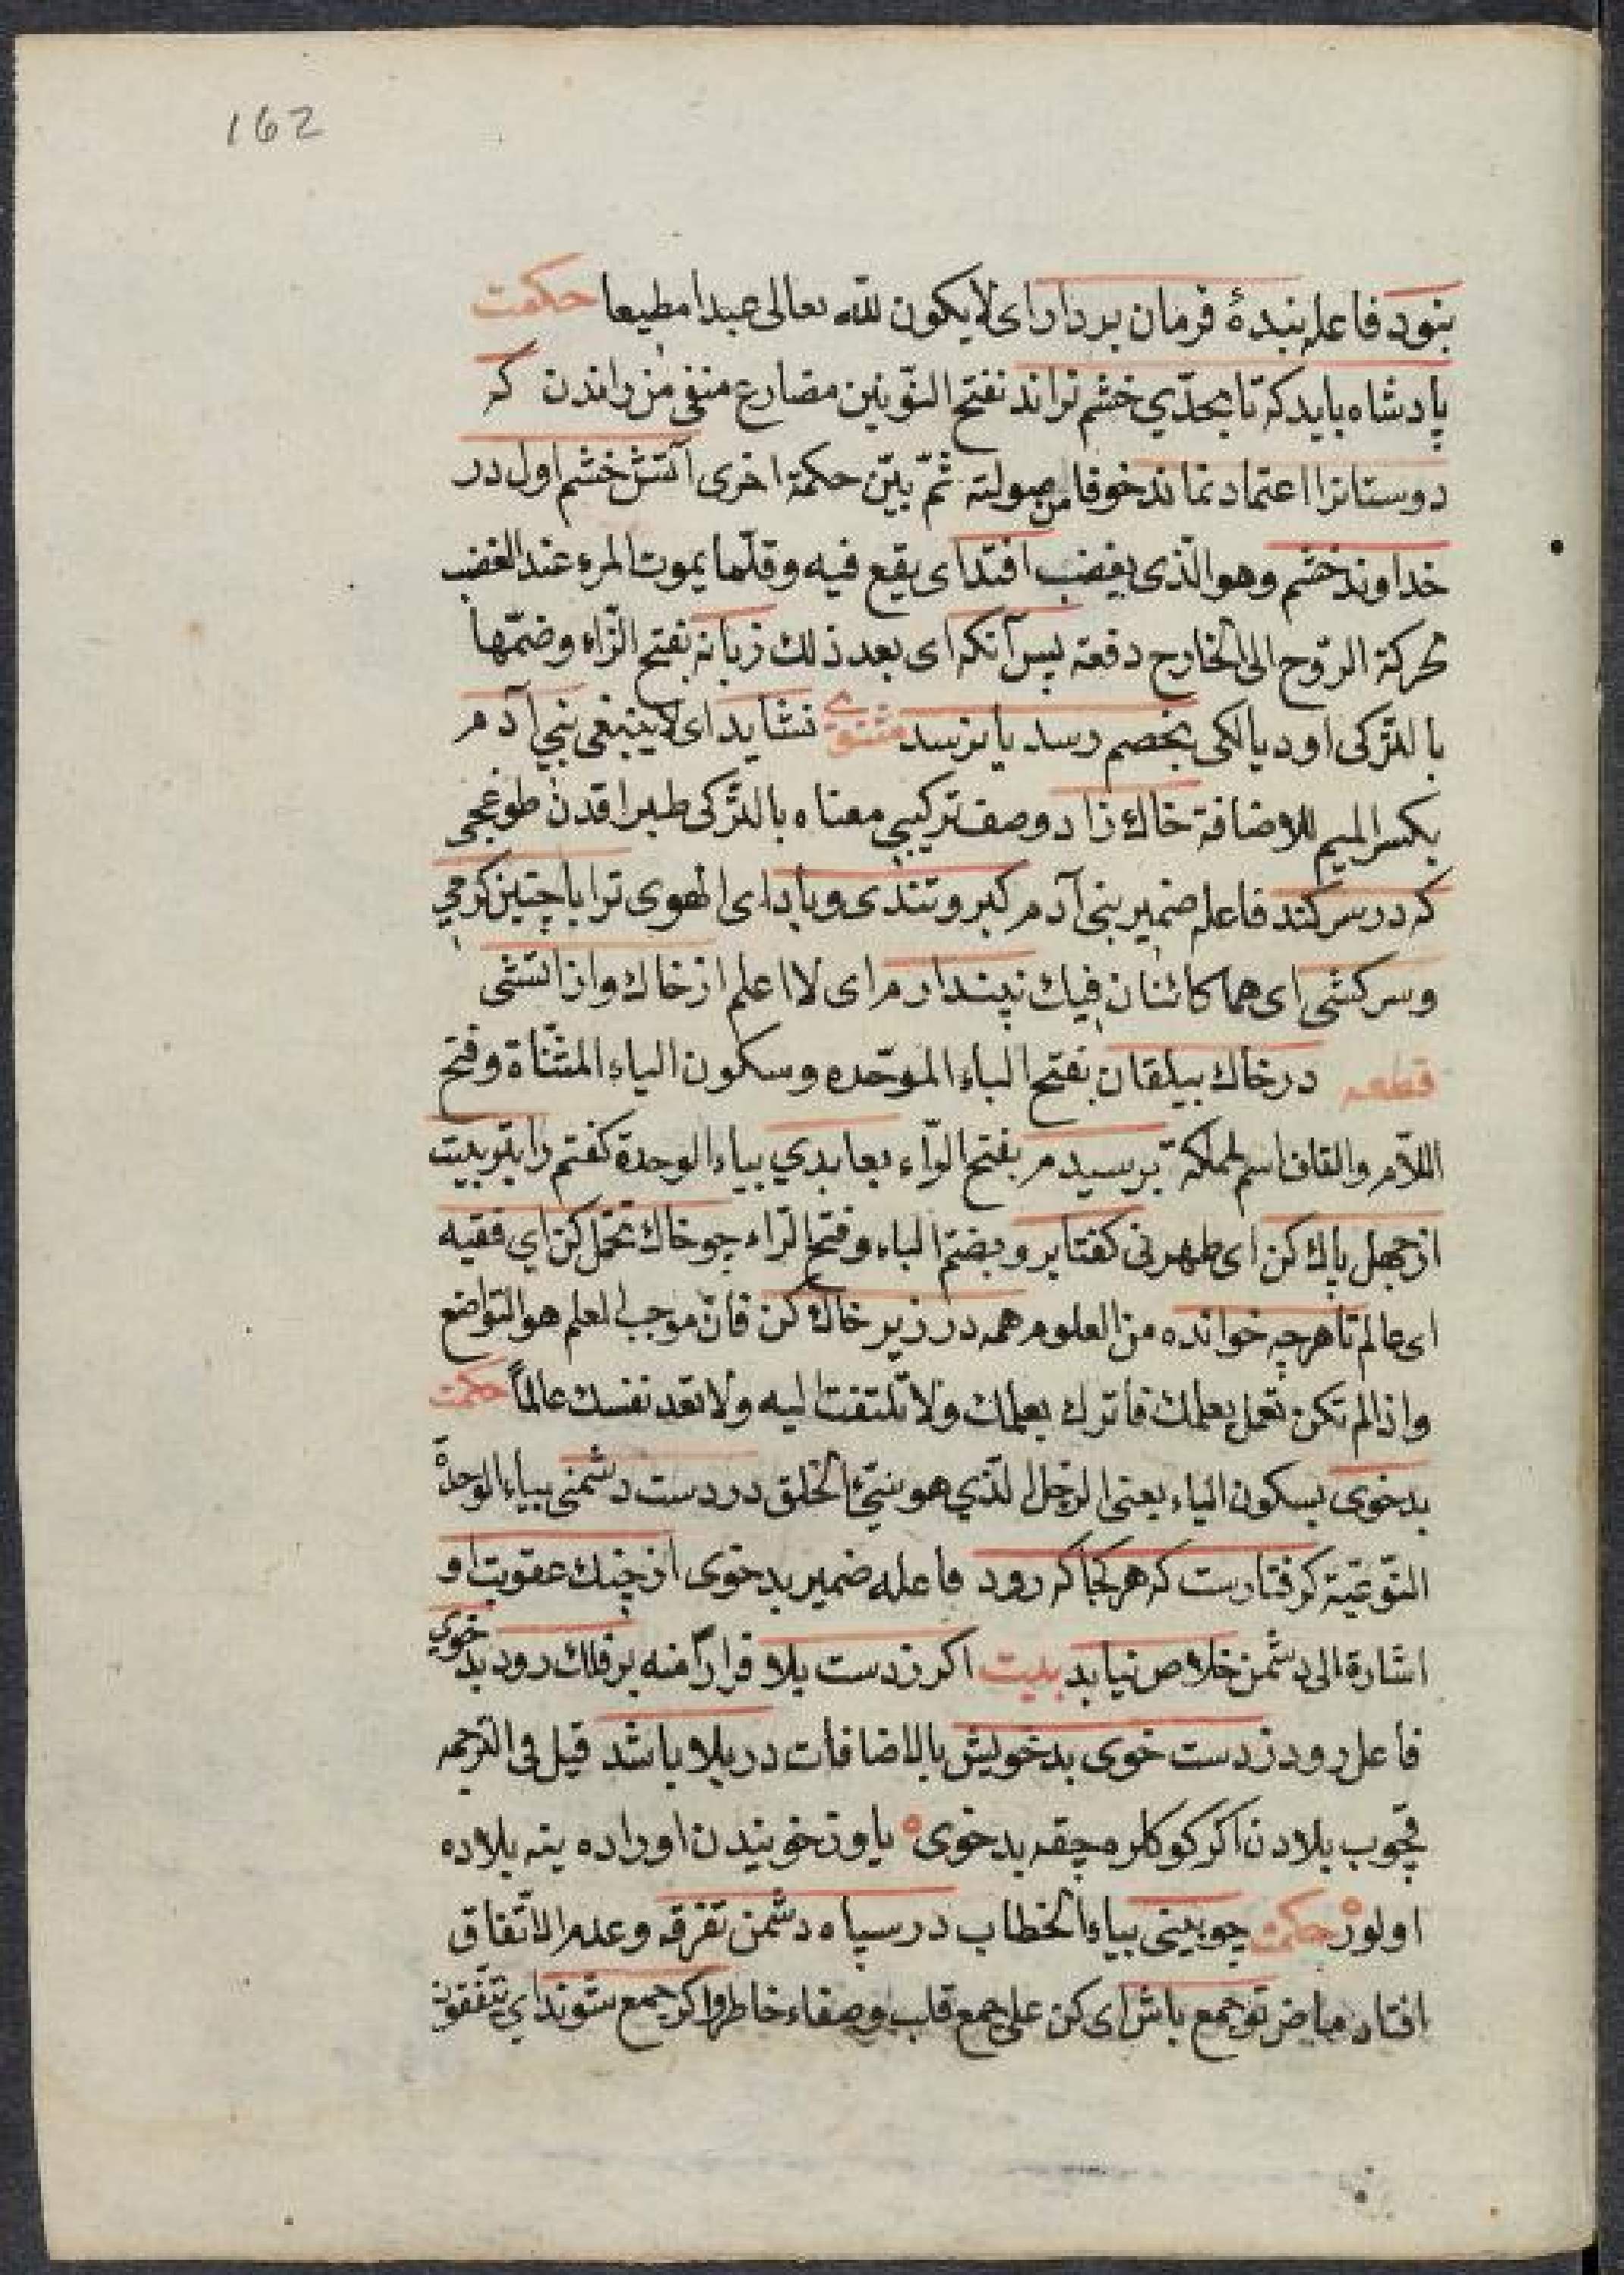 162
بنود فاعله بندهٔ فرمان بردار ای لا یکون لله تعالی عبدا مطیعا حکمت
پادشاه باید که تا بحدّی خشم نراند بفتح النّونین مضارع منفی من راندن که
دوستانرا اعتماد نماند خوفا من صولته ثمّ بیّن حکمة اخری آتش خشم اول در
خداوند خشم وهو الّذی یغضب افتد ای یقع فیه وقلّما یموت المرء عند الغضب
لحرکة الرّوح الی الخارج دفعة پس آنکه ای بعد ذلك زبانه بفتح الزّاء وضمّها
بالترکی اود یالکی بخصم رسد یا نرسد مثنوی نشاید ای لا ینبغی بنی آدم
بکسر المیم للاضافة خاك زاد وصف ترکیبی معناه بالترکی طبراقدن طوغمجی
که در سر کند فاعله ضمیر بنی آدم کبر وتندی وباد ای الهوی ترا با چنین کرمی
وسرکشی ای هما کائنان فیك نپندارم ای لا اعلم از خاك واز آتشی
قطعه در خاك بیلقان بفتح الباء الموحّده وسکون الیاء المثنّاة وفتح
اللاّم والقاف اسم لمملکة برسیدم بفتح الرّاء بعابدی بیاء الوحدة کفتم را بتربیت
از جهل پاك کن ای طهرنی کفتا برو بضمّ الباء وفتح الرّاء چو خاك تحمّل کن ای فقیه
ای عالم تا هرچه خوانده من العلوم همه در زیر خاك کن فانّ موجب العلم هو التواضع
واذا لم تکن تعمل بعلمك فاترك بعلمك ولا تلتفت الیه ولا تعد نفسك عالماً حکمت
بدخوی بسکون الیاء یعنی الرّجل الّذی هو سیّئ الخلق در دست دشمنی بیاء الوحدة
النّوعیّة کرفتارست که هر کجا که رود فاعله ضمیر بدخوی از چنك عقوبت او
اشارة الی دشمن خلاص نیابد بیت اکر زدست بلا فراراً منه بر فلك رود بدخوی
فاعل رود زدست خوی بد خویش بالاضافات در بلا باشد قیل فی الترجمه
قچوب بلادن اکر کوکلره چقه بدخوی یاوز خویندن اوراده ینه بلاده
اولور حکمت چو بینی بیاء الخطاب در سپاه دشمن تفرقه وعدم الاتّفاق
افتاد ماضر تو جمع باش ای کن علی جمع قلب وصفاء خاطر واکر جمع شوند ای یتّفقون